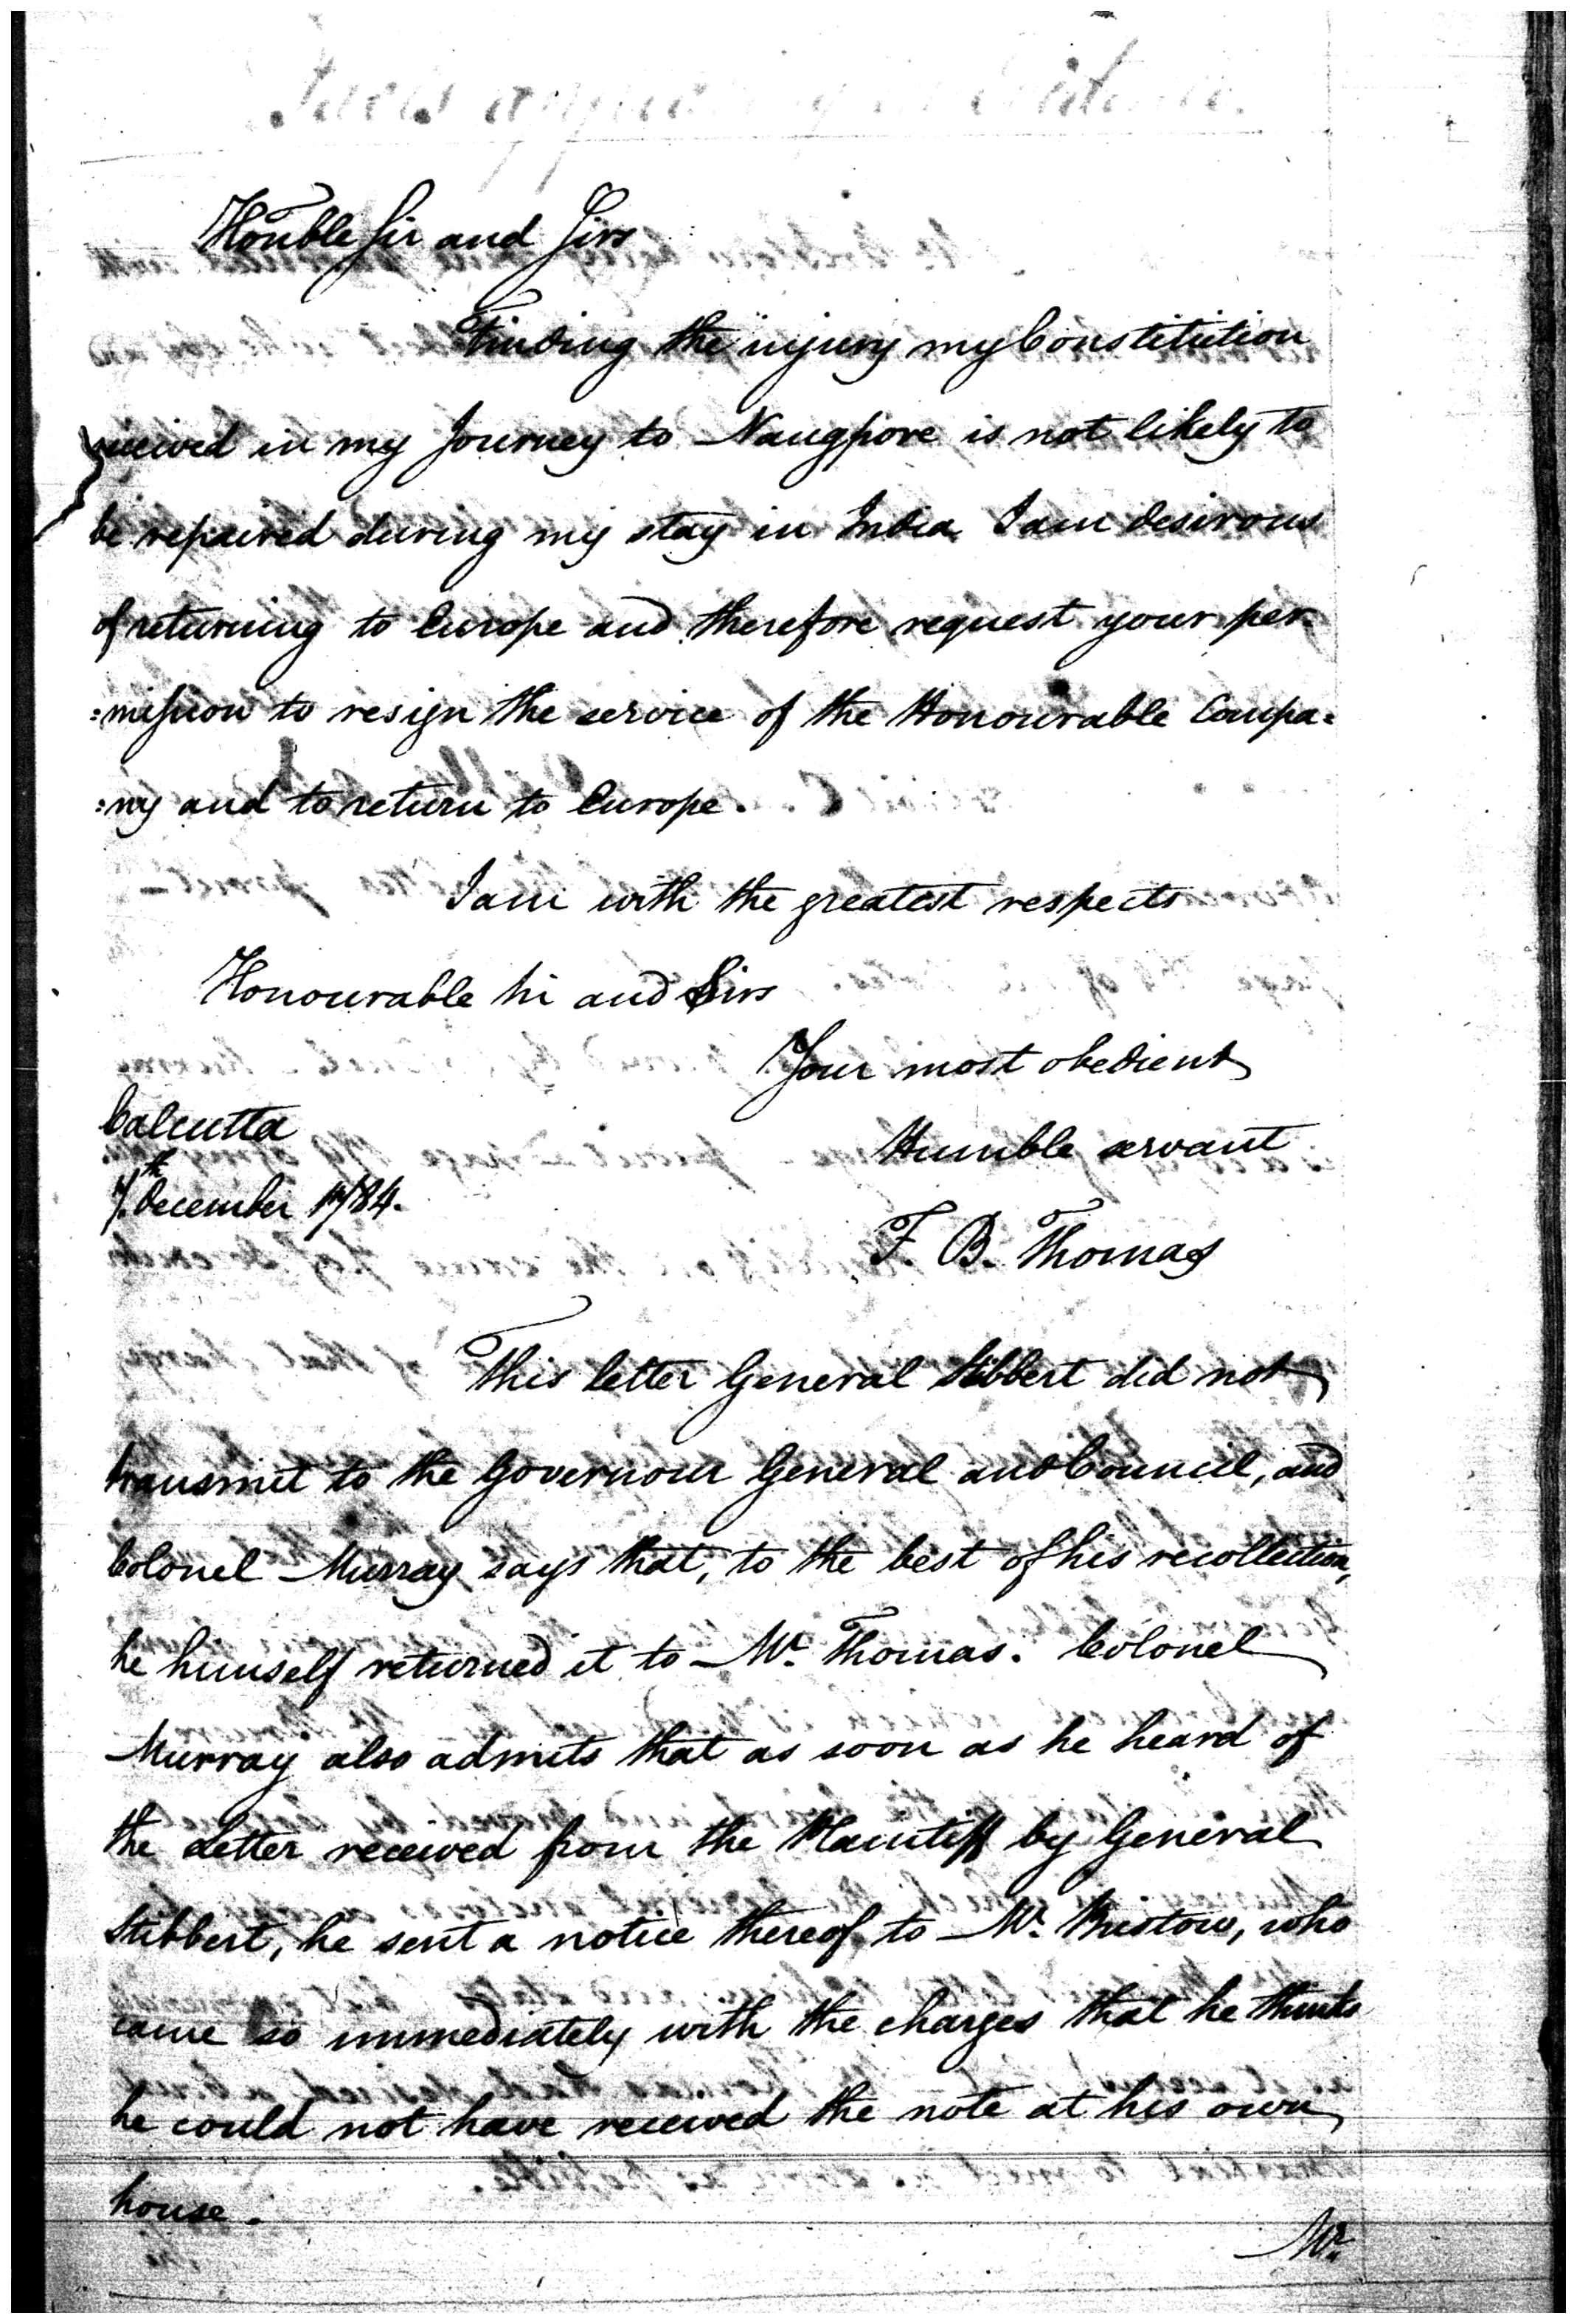 Facts appearing in Evidence.
Honble Sir and Sirs
Finding the injury my Constitution
received in my Journey to Naugpore is not likely to
be repaired during my stay in India I am desirous
of returning to Europe and therefore request your per-
:mission to resign the service of the Honourable Compa=
:ny and to return to Europe.
I am with the greatest respects
Honourable Sir and Sirs
Your most obedient
Calcutta
Humble servant
7th December 1784.
F. B. Thomas
This letter General Stibbert did not
transmit to the Governour General and Council, and
Colonel Murray says that, to the best of his recollection,
he himself returned it to Mr. Thomas. Colonel
Murray also admits that as soon as he heard of
the Letter received from the Plaintiff by General
Stibbert, he sent a notice thereof to Mr. Bristow, who
came so immediately with the charges that he thinks
he could not have received the note at his own
house.
Mr.